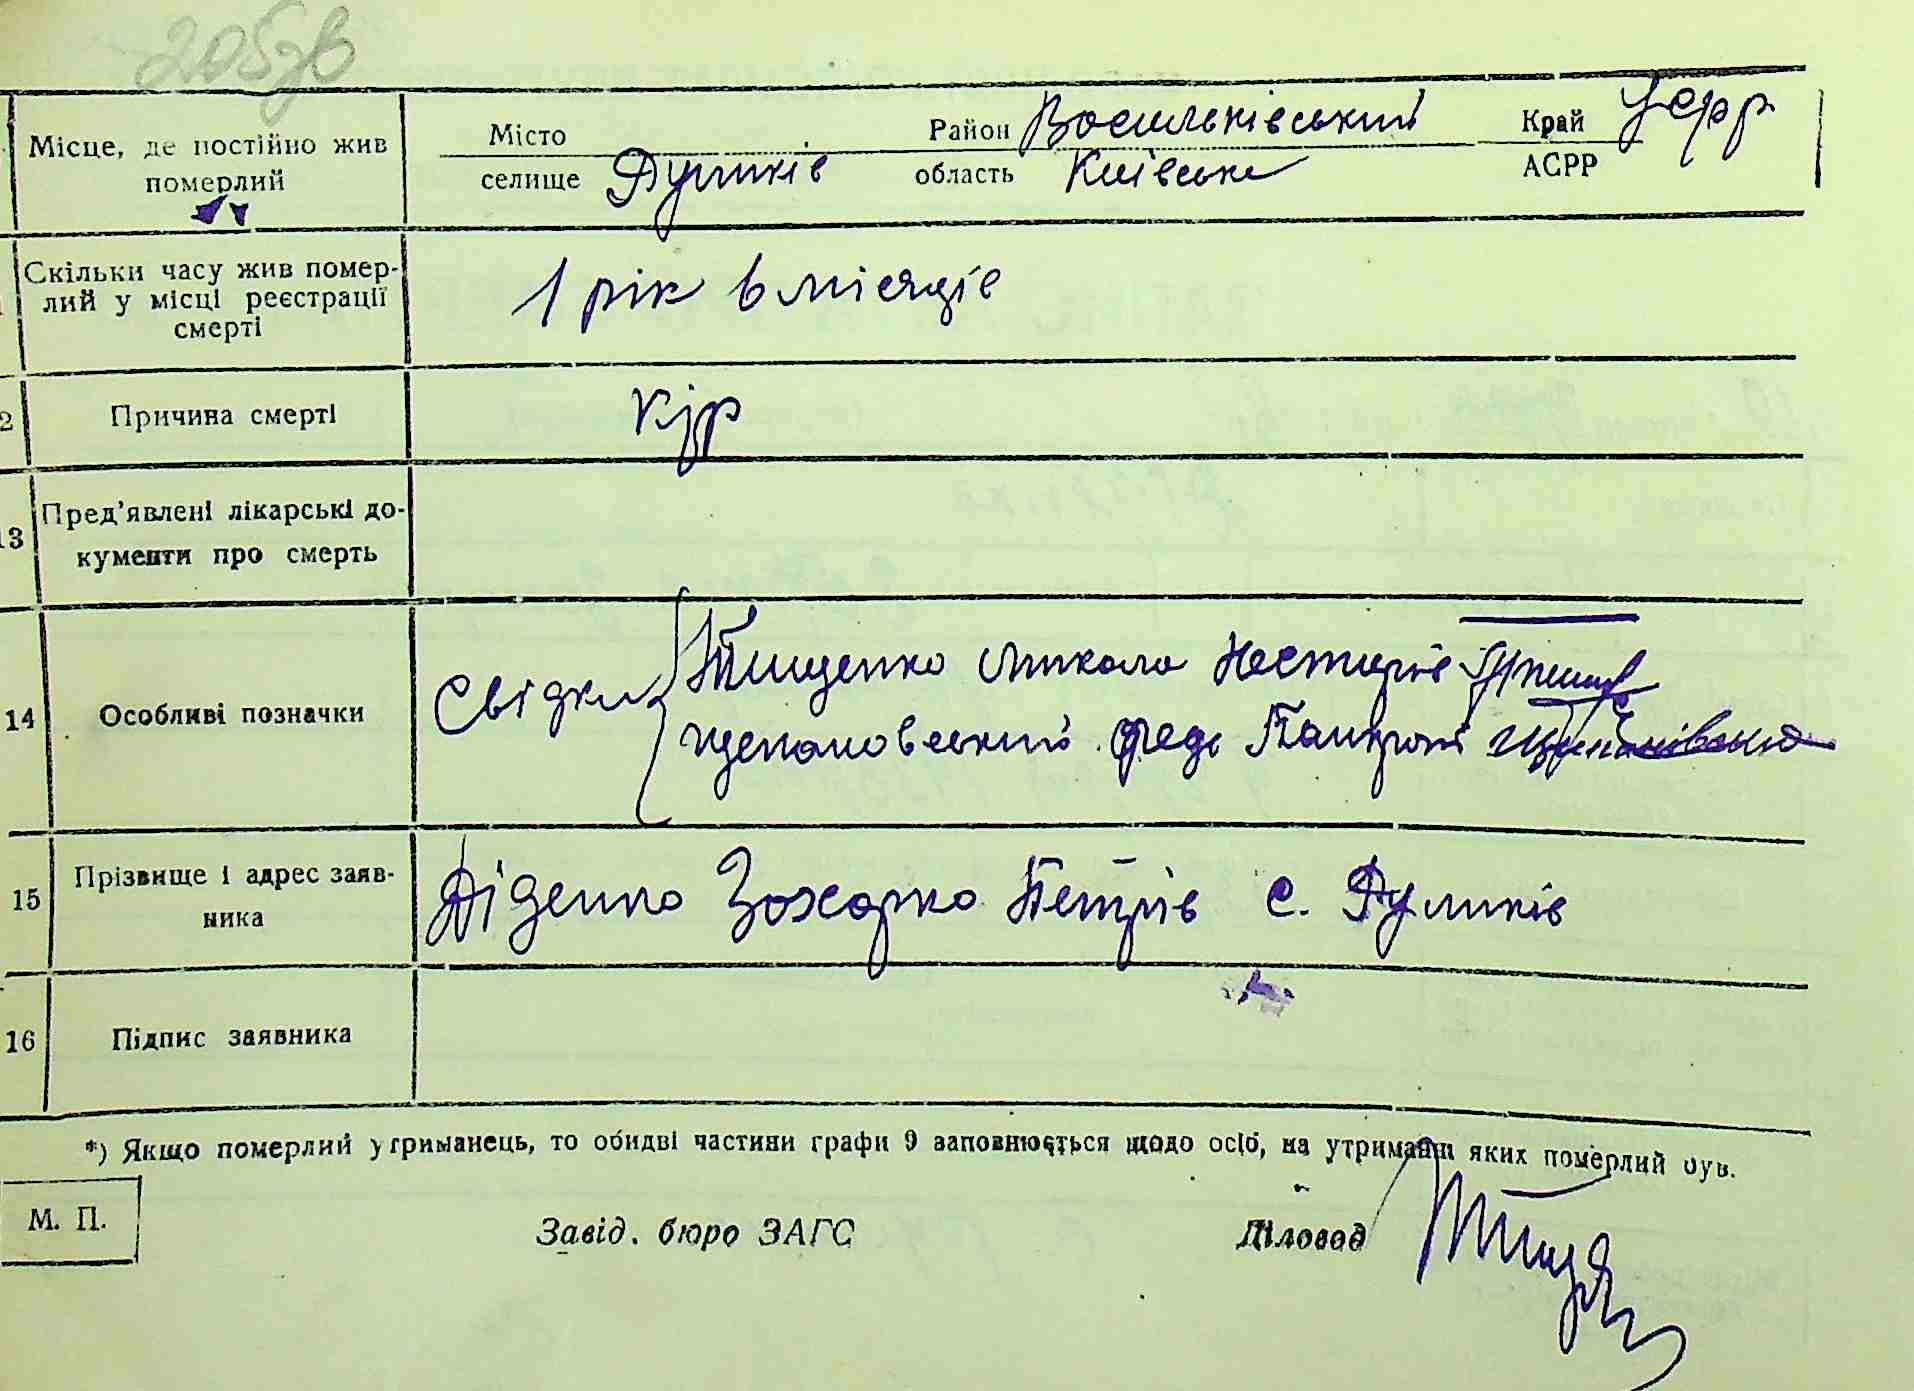 205зв
Місце, де постійно жив
померлий
Місто
селище Думиків
Район Восильківський
область Київське
Край
АСРР
УСРР
Скільки часу жив помер-
лий у місці реєстрації
смерті
1 рік 6 місяців
2 Причина смерті
Кір
13 Пред'явлені лікарські до-
кументи про смерть
14 Особливі позначки
Свідки Тищенко Микола Несторів
щепановський федь
15 Прізвище і адрес заяв-
ника
Діденко Зохарко Петрів с. Думиків
16 Підпис заявника
*) Якщо померлий утриманець, то обидві частини графи 9 заповнюється щодо осіб, на утриманні яких померлий був.
М. П.
Завід. бюро ЗАГС
Діловод